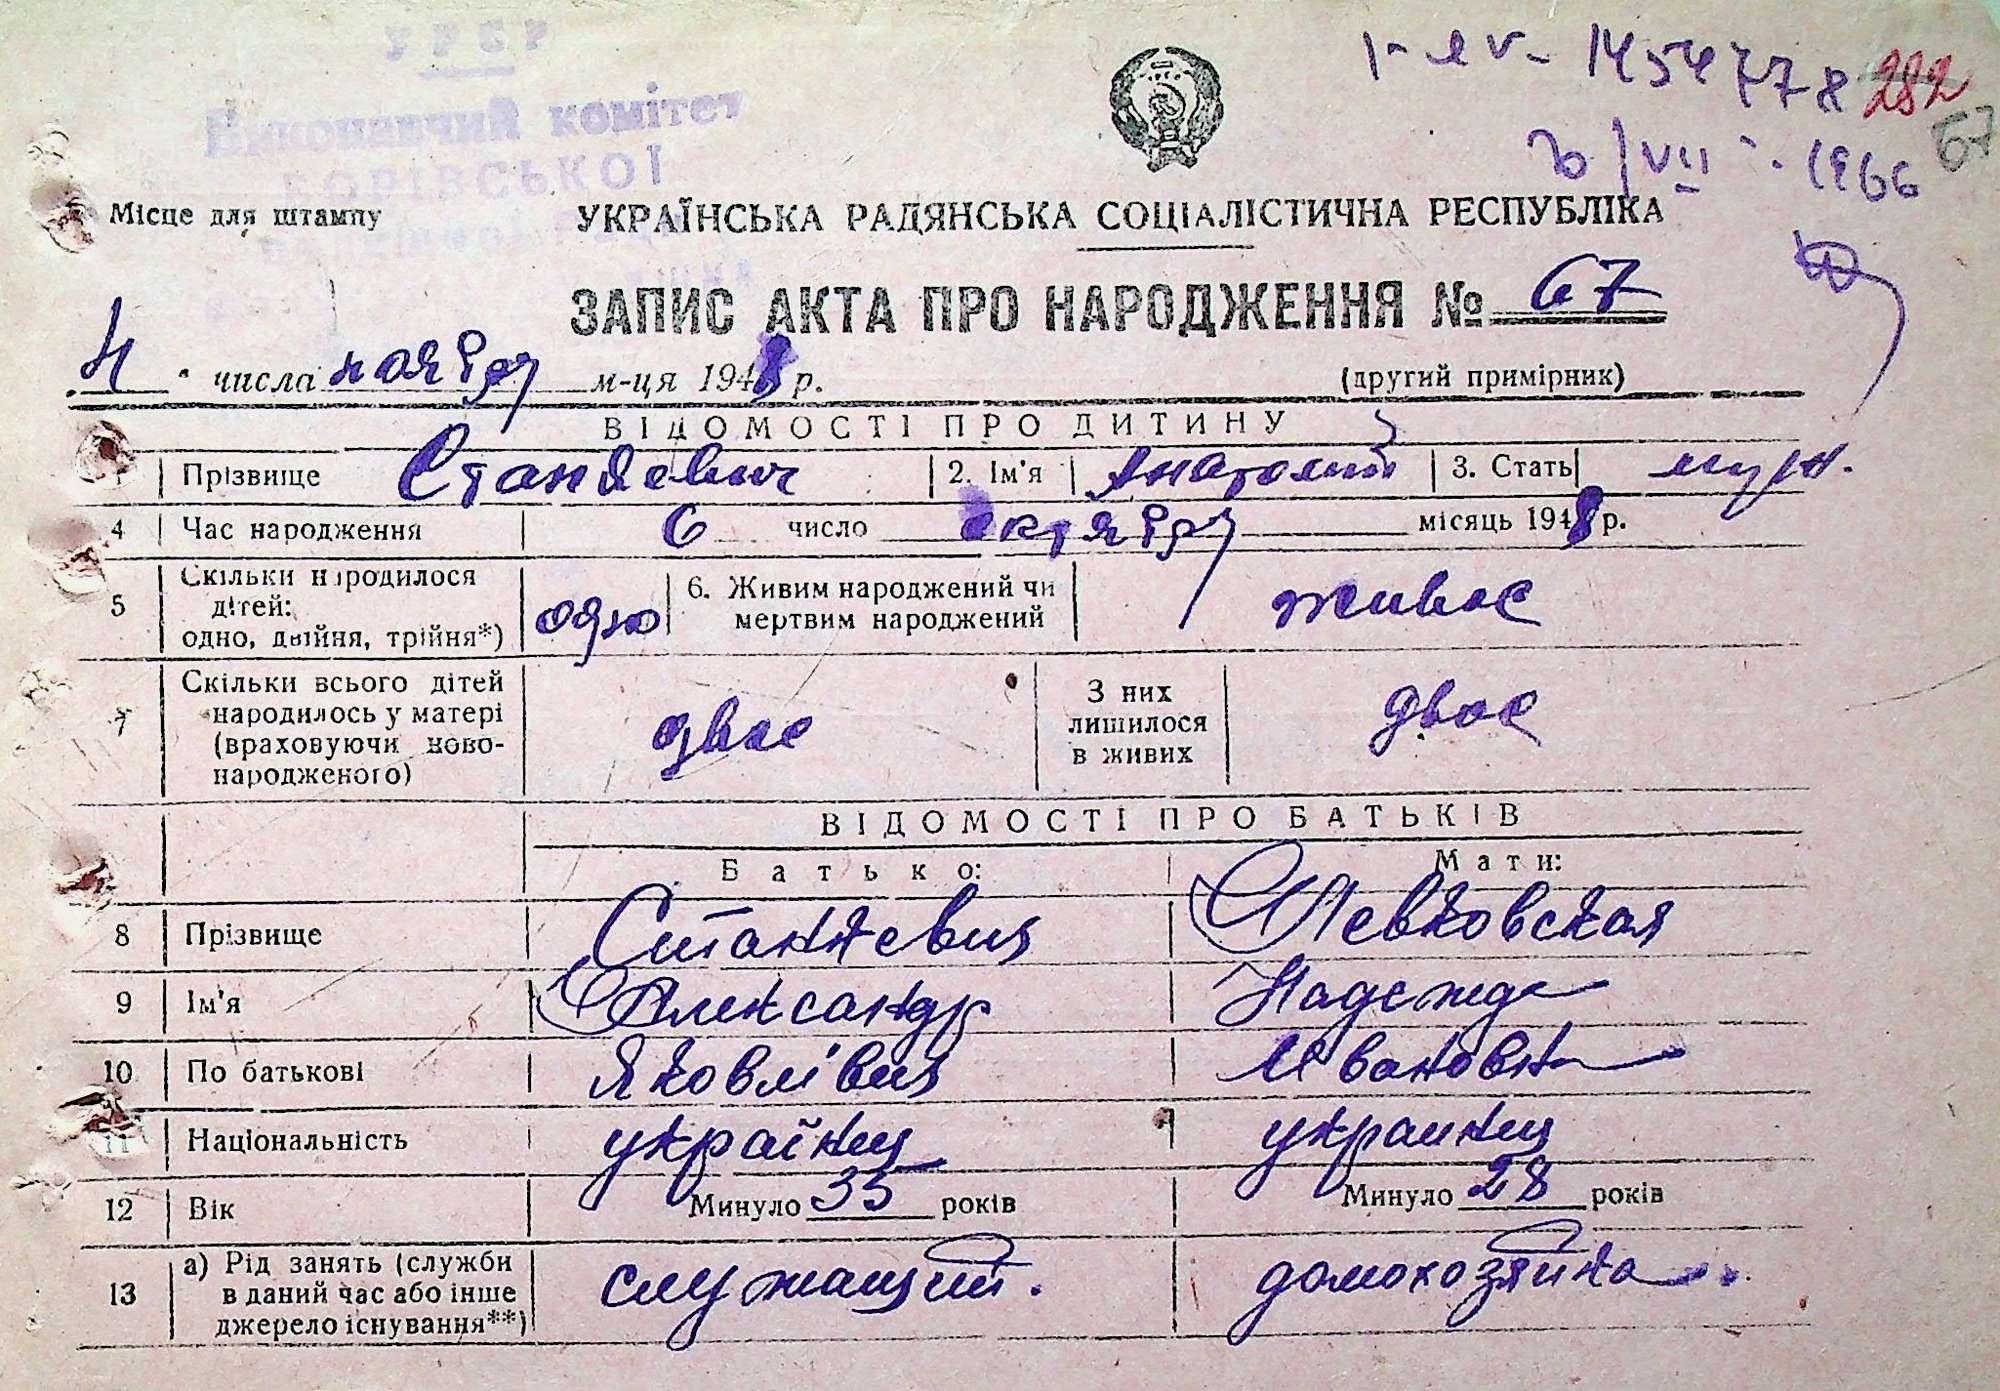 УРСР
Виконавчий комітет
1454778 282
67
VII 1966
Місце для штампу УКРАЇНСЬКА РАДЯНСЬКА СОЦІАЛІСТИЧНА РЕСПУБЛІКА
ЗАПИС АКТА ПРО НАРОДЖЕННЯ № 67
4 числа ноября м-ця 1948 р. (другий примірник)
ВІДОМОСТІ ПРО ДИТИНУ
1 Прізвище Станкевич 2. Ім'я Анатолий 3. Стать муж.
4 Час народження 6 число октября місяць 1948 р.
5 Скільки народилося дітей: одно, двійня, трійня*) одно 6. Живим народжений чи мертвим народжений живое
7 Скільки всього дітей народилось у матері (враховуючи ново-народженого) двое З них лишилося в живих двое
ВІДОМОСТІ ПРО БАТЬКІВ
Батько: Мати:
8 Прізвище Станкевич Левковская
9 Ім'я Александр Надежда
10 По батькові Яковлівич Ивановна
11 Національність українец украинец
12 Вік Минуло 35 років Минуло 28 років
13 а) Рід занять (служби в даний час або інше джерело існування**) служащий. домохозяйка